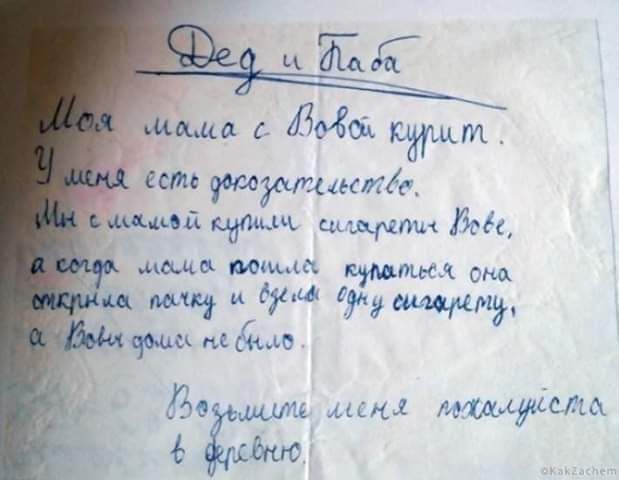 Дед и Баба
Моя мама с Вовой курит.
У меня есть докозательство.
Мы с мамой купили сигареты Вове,
а когда мама пошла купаться она
открыла пачку и взела одну сигарету,
а Вовы дома не было.
Возьмите меня пожалуйста
в деревню.
©KakZachem